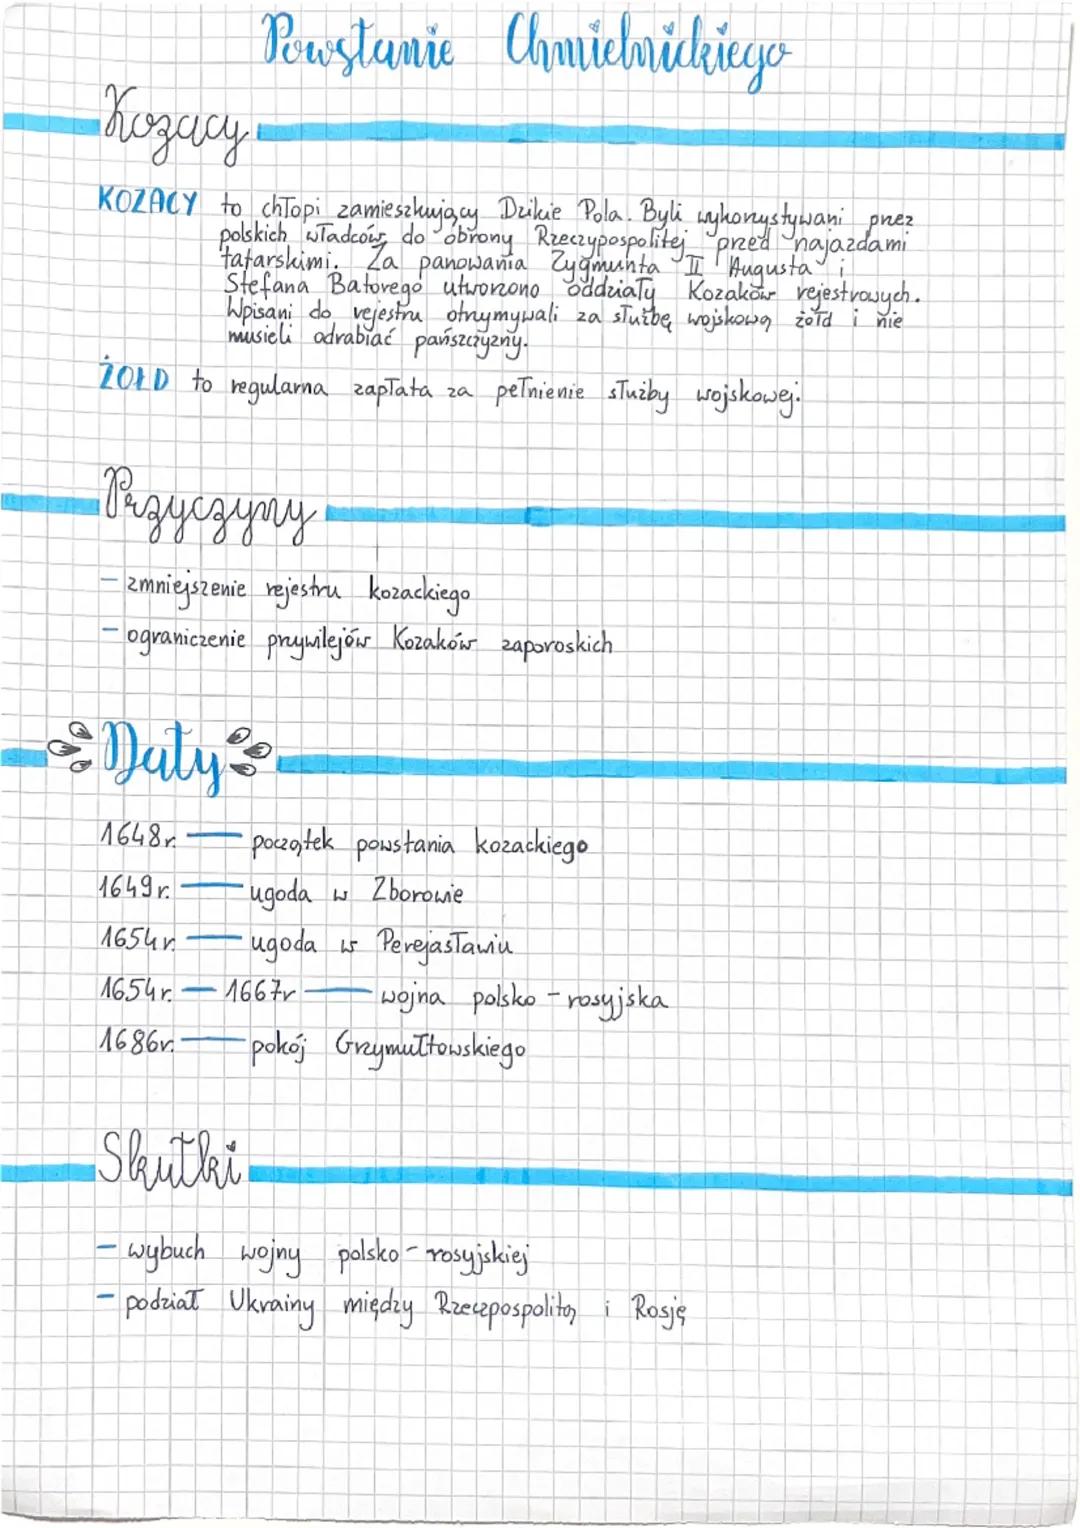 Powstanie Chmielnickiego
Kozacy
KOZACY to chłopi zamieszkujący Dzikie Pola. Byli wykorzystywani przez
polskich władców do obrony Rzeczypospolitej przed najazdami
tatarskimi. Za panowania Zygmunta II Augusta i
Stefana Batorego utworzono oddziały Kozaków rejestrowych.
Wpisani do rejestru otrzymywali za służbę wojskową żołd i nie
musieli odrabiać pańszczyzny.
ŻOŁD to regularna zapłata za pełnienie służby wojskowej.
Przyczyny
- zmniejszenie rejestru kozackiego
- ograniczenie przywilejów Kozaków zaporoskich
Daty
1648r. — początek powstania kozackiego
1649r. — ugoda w Zborowie
1654r. — ugoda w Perejasławiu
1654r. — 1667r — wojna polsko-rosyjska
1686r. — pokój Grzymułtowskiego
Skutki
- wybuch wojny polsko-rosyjskiej
- podział Ukrainy między Rzeczpospolitą i Rosję